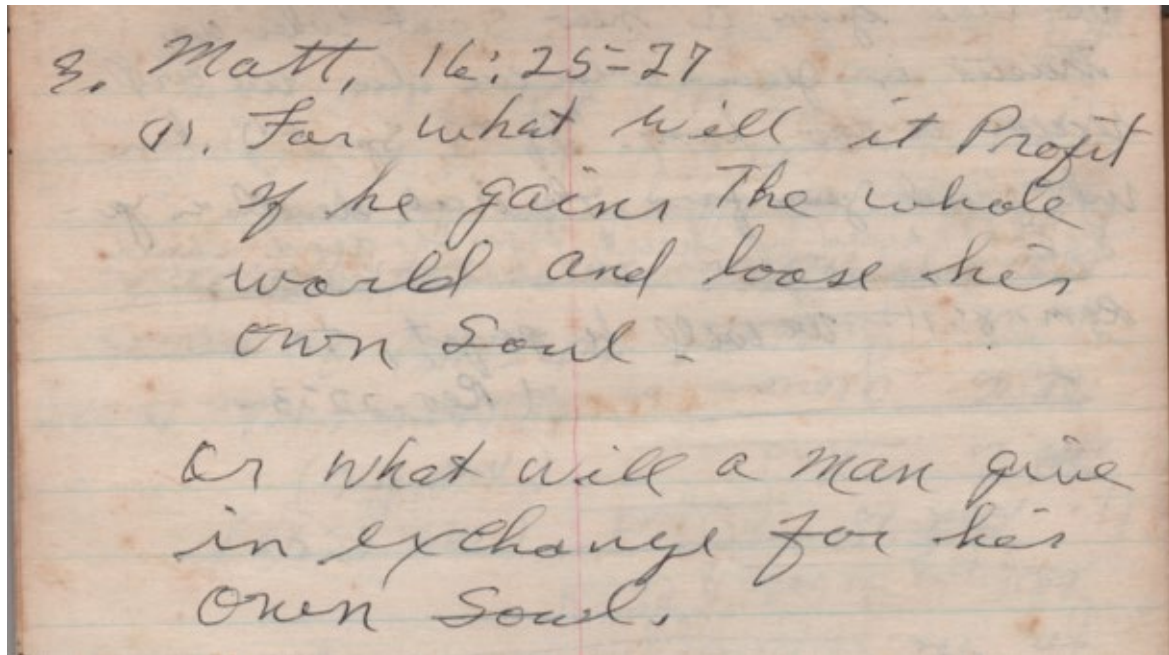 3. Matt, 16:25-27
(1). For what will it Profit
if he gains The whole
world and loose his
own Soul.
Or what will a man give
in exchange for his
Own Soul.